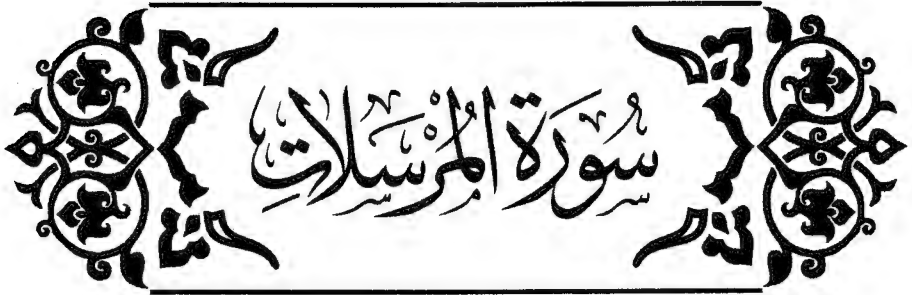 سُورَة الْمُرْسَلَاتِ